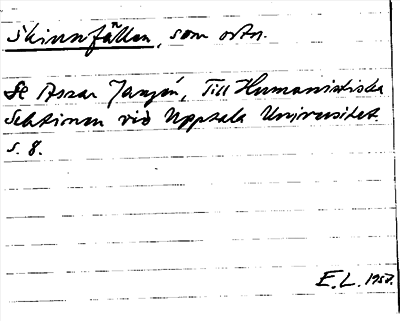 Skinnfällen, som ortn.
Se Assar Janzén, Till Humanistiska
Sektionen vid Uppsala Universitet
s. 8.
E.L. 1950.